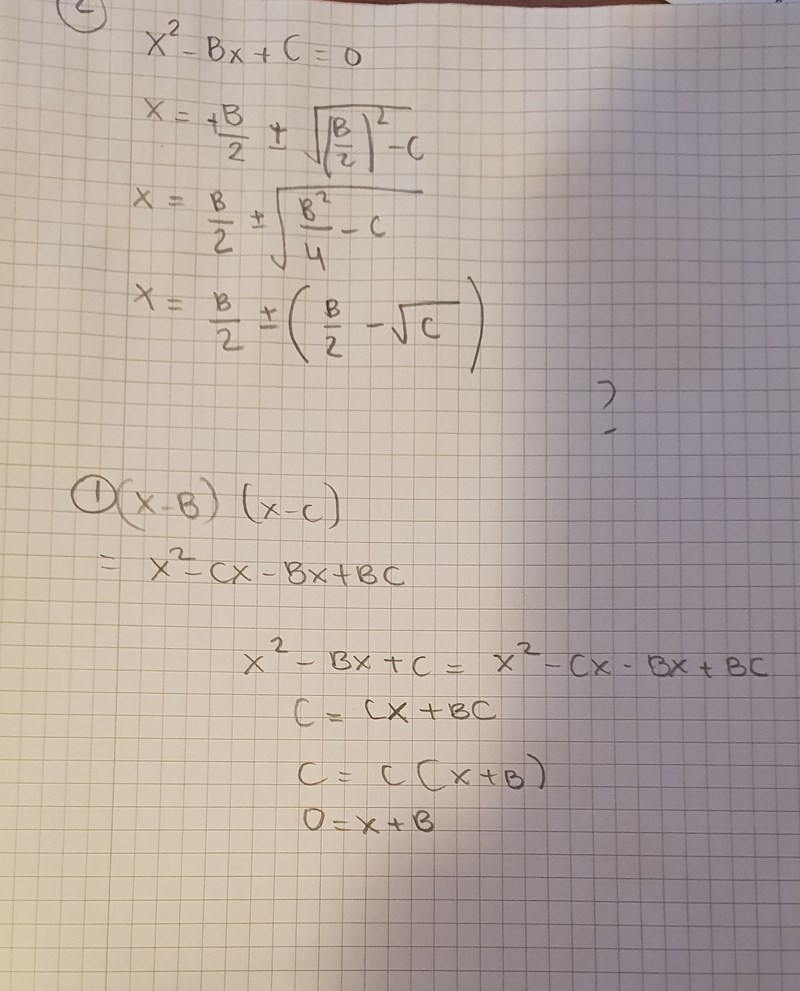 2
x² - Bx + C = 0
x = +B/2 ± √((B/2)² - C)
x = B/2 ± √(B²/4 - C)
x = B/2 ± (B/2 - √C)
?
① (x-B) (x-C)
= x² - Cx - Bx + BC
x² - Bx + C = x² - Cx - Bx + BC
C = Cx + BC
C = C(x+B)
0 = x + B